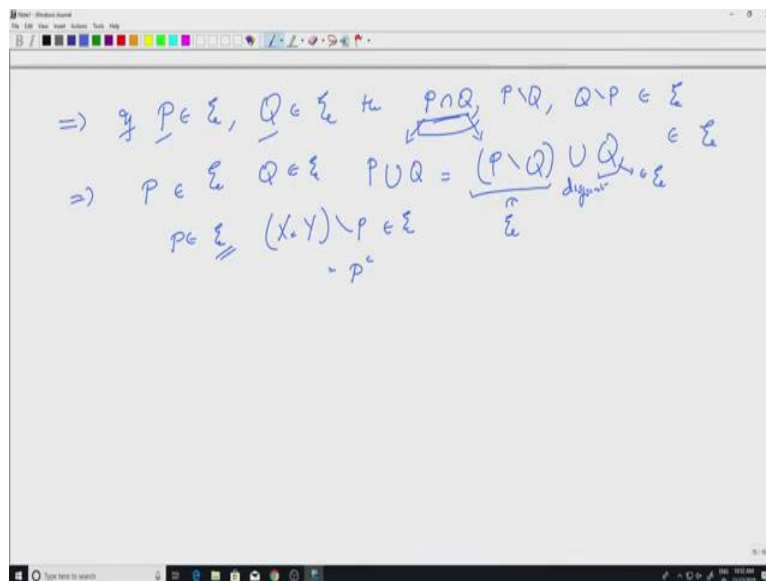 Note1 - Windows Journal
File Edit View Insert Actions Tools Help
⇒) If P ∈ ℰ, Q ∈ ℰ the P∩Q, P\Q, Q\P ∈ ℰ
⇒) P ∈ ℰ Q ∈ ℰ P∪Q = (P\Q) ∪ Q ∈ ℰ
disjoint ∈ ℰ
P ∈ ℰ (X×Y)\P ∈ ℰ ℰ
= Pᶜ
Type here to search